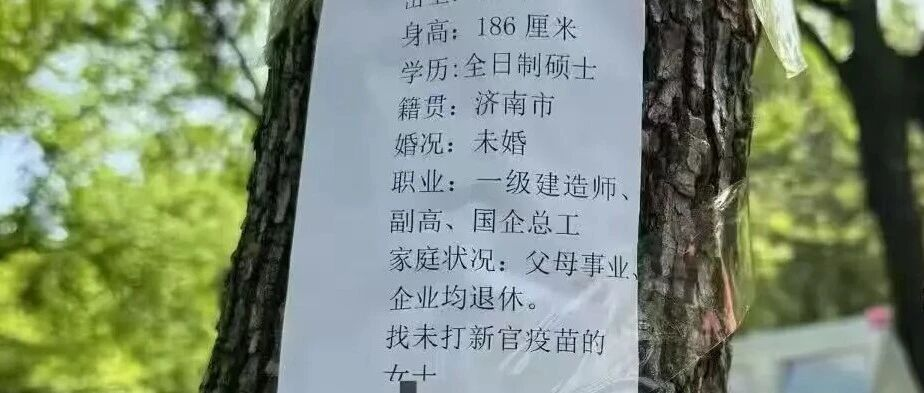 身高：186 厘米
学历:全日制硕士
籍贯：济南市
婚况：未婚
职业：一级建造师、
副高、国企总工
家庭状况：父母事业、
企业均退休。
找未打新官疫苗的
女士